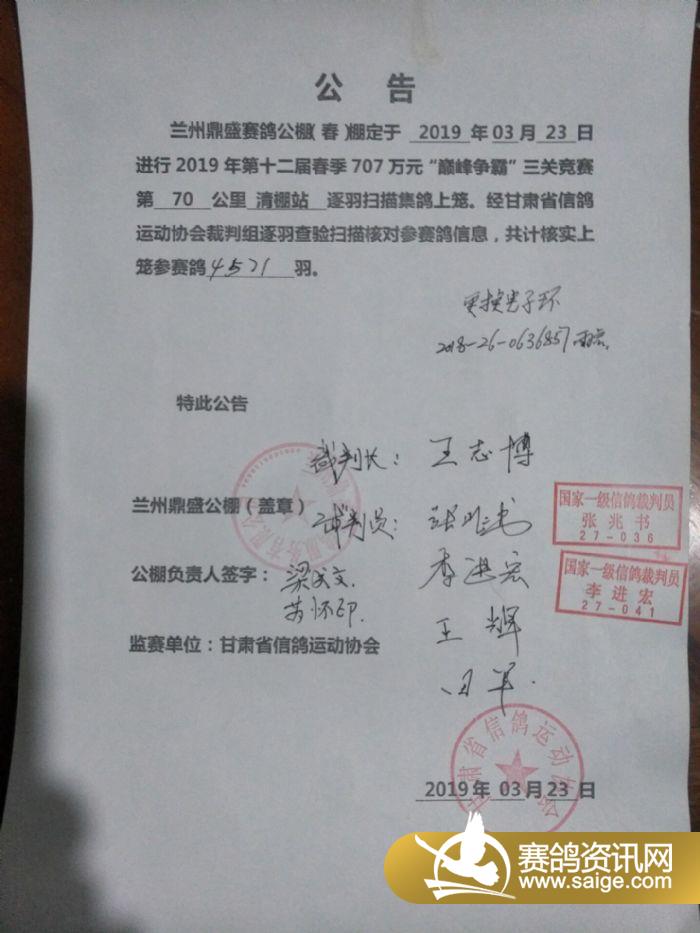 公 告
兰州鼎盛赛鸽公棚(春)棚定于 2019 年 03 月 23 日
进行 2019 年第十二届春季 707 万元“巅峰争霸”三关竞赛
第 70 公里 清棚站 逐羽扫描集鸽上笼。经甘肃省信鸽
运动协会裁判组逐羽查验扫描核对参赛鸽信息，共计核实上
笼参赛鸽 4571 羽。
更换电子环
2018-26-0636857
特此公告
裁判长：王志博
兰州鼎盛公棚（盖章）
裁判员：张兆书
国家一级信鸽裁判员
张兆书
27-036
公棚负责人签字：
李进宏
国家一级信鸽裁判员
李进宏
27-041
王辉
监赛单位：甘肃省信鸽运动协会
甘肃省信鸽运动协会
2019 年 03 月 23 日
赛鸽资讯网
www.saige.com